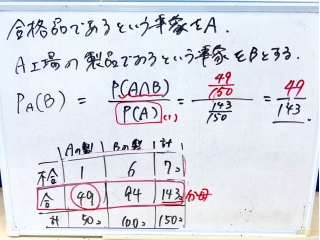 合格品であるという事象をA.
A工場の製品であるという事象をBとする.
P_A(B) = P(A∩B) / P(A) (1) = (49/150) / (143/150) = 49/143
Aの製 Bの製 計
不合 1 6 7
合 49 94 143 分母
計 50 100 150